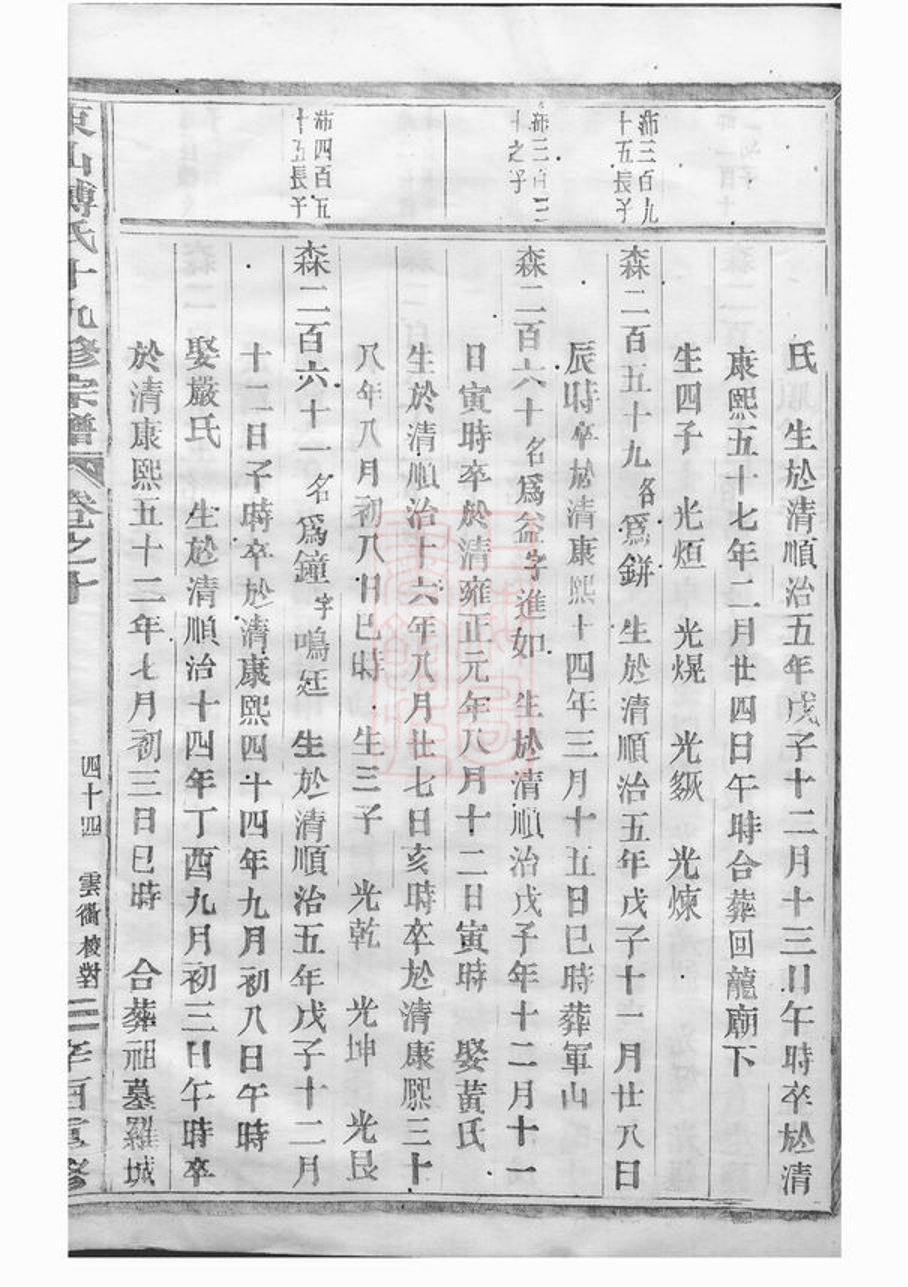 氏 生於清順治五年戊子十二月十三日午時卒於清
康熙五十七年二月廿四日午時合葬回龍廟下
生四子 光烜 光熀 光燉 光煉
沛三百九
十五長子
森二百五十九名爲鉼 生於清順治五年戊子十一月廿八日
辰時卒於清康熙十四年三月十五日巳時葬軍山
沛三百三
十之子
森二百六十名爲益字進如 生於清順治戊子年十二月十一
日寅時卒於清雍正元年八月十二日寅時 娶黃氏
生於清順治十六年八月廿七日亥時卒於清康熙三十
八年八月初八日巳時 生三子 光乾 光坤 光艮
沛四百五
十五長子
森二百六十一名爲鐘字鳴廷 生於清順治五年戊子十二月
十二日子時卒於清康熙四十四年九月初八日午時
娶嚴氏 生於清順治十四年丁酉九月初三日午時卒
於清康熙五十二年七月初三日巳時 合葬祖墓羅城
東山傅氏十九修宗譜 卷之十 四十四 雲衢校對 辛酉重修